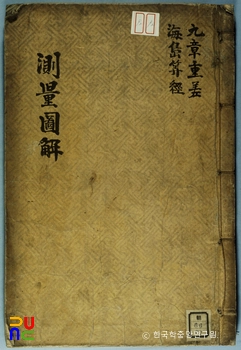 九章重差
海島算經
測量圖解
한국학중앙연구원